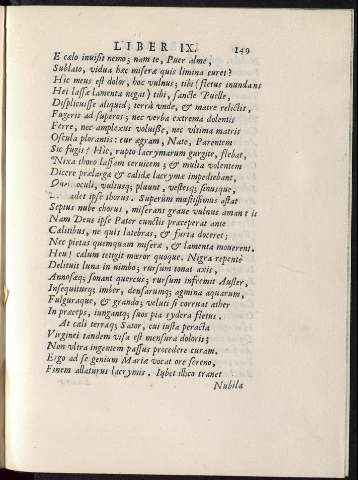 LIBER IX. 149
E cælo inuisit nemo; nam te, Puer alme,
Sublato, vidua hæc miseræ quis limina curet?
Hic meus est dolor, hoc vulnus; tibi (fletus inundans
Hei lassæ lamenta negat) tibi, sancte Puelle,
Displicuisse aliquid; terrâ vnde, & matre relictis,
Fugeris ad superos; nec verba extrema dolentis
Ferre, nec amplexus voluisse, nec vltima matris
Oscula plorantis: cur ægram, Nate, Parentem
Sic fugis? Hîc, rupto lacrymarum gurgite, flebat,
Nixa thoro lassam ceruicem; & multa volentem
Dicere prælarga & calidæ lacrymæ impediebant,
oculi, vultusq; pluunt, vestesq; sinusque,
adet ipse thorus. Superûm mæstissimus astat
Septus nube chorus, miserans graue vulnus amantis
Nam Deus ipse Pater cunctis præceperat ante
Cælitibus, ne quis latebras, & furta doceret;
Nec pietas quemquam miseræ, & lamenta mouerent.
Heu! cælum tetigit mœror quoque. Nigra repentè
Delituit luna in nimbo; rursum tonat axis,
Annosæq; sonant quercus; rursum infremit Auster,
Insequiturq; imber, densarumq; agmina aquarum,
Fulguraque, & grando; veluti si corruat æther
In præceps, iungantq; suos pia sydera fletus.
At cæli terræq; Sator, cui iusta peracta
Virginei tandem visa est mensura doloris;
Non vltra ingentem passus procedere curam.
Ergo ad se genium Mariæ vocat ore sereno,
Finem allaturus lacrymis. Iubet illico tranet
Nubila